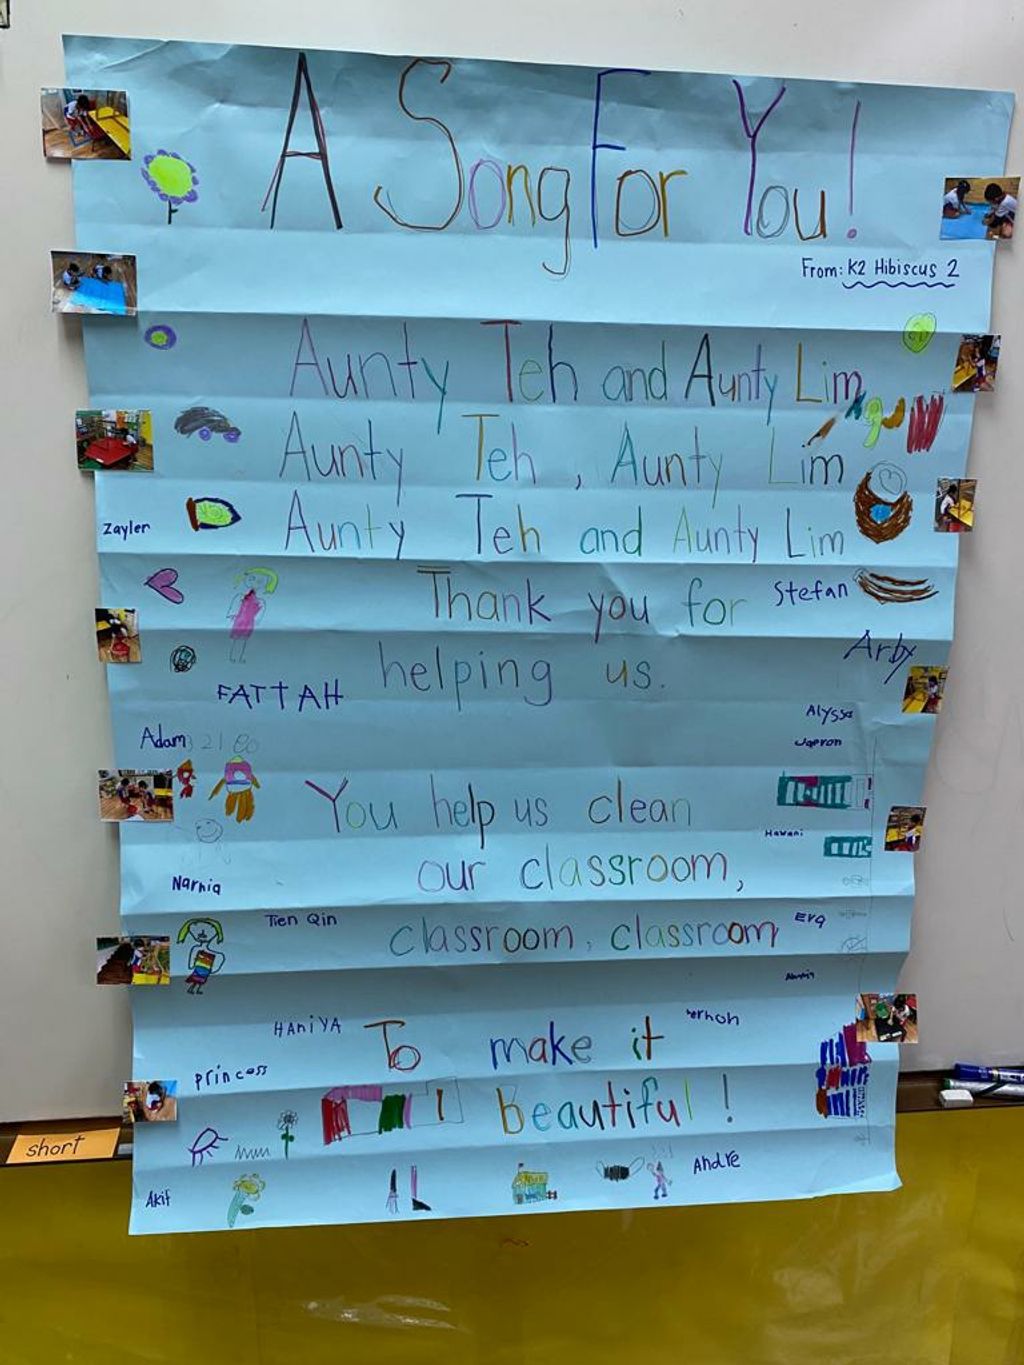 A Song For You!
From: K2 Hibiscus 2
Aunty Teh and Aunty Lim,
Aunty Teh, Aunty Lim
Aunty Teh and Aunty Lim
Zayler
Thank you for
Stefan
helping us.
Arby
FATTAH
Alyssa
Adam 321
You help us clean
Hawani
our classroom,
Narnia
Tien Qin
classroom, classroom
Eva
HANiYA
To make it
princess
Beautiful!
short
Akif
Andre